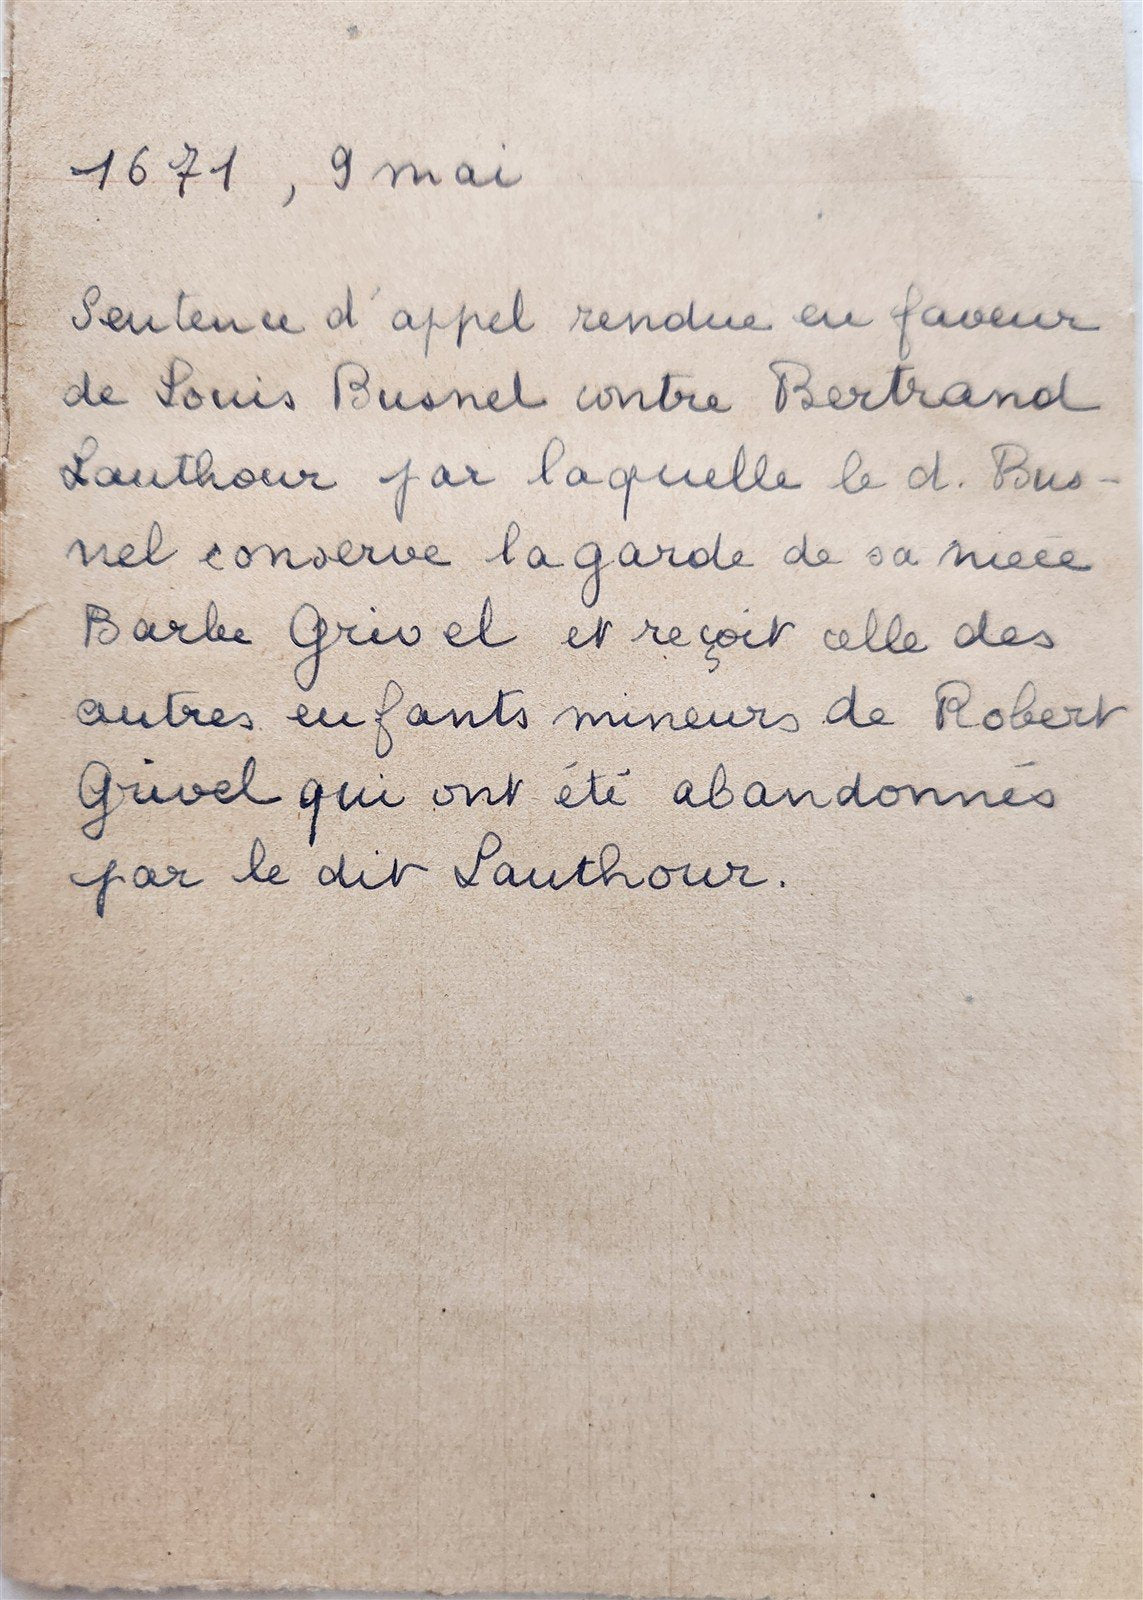 1671, 9 mai
Sentence d'appel rendue en faveur
de Louis Busnel contre Bertrand
Lauthour par laquelle le d. Bus-
nel conserve la garde de sa nièce
Barbe Grivel et reçoit celle des
autres enfants mineurs de Robert
Grivel qui ont été abandonnés
par le dit Lauthour.